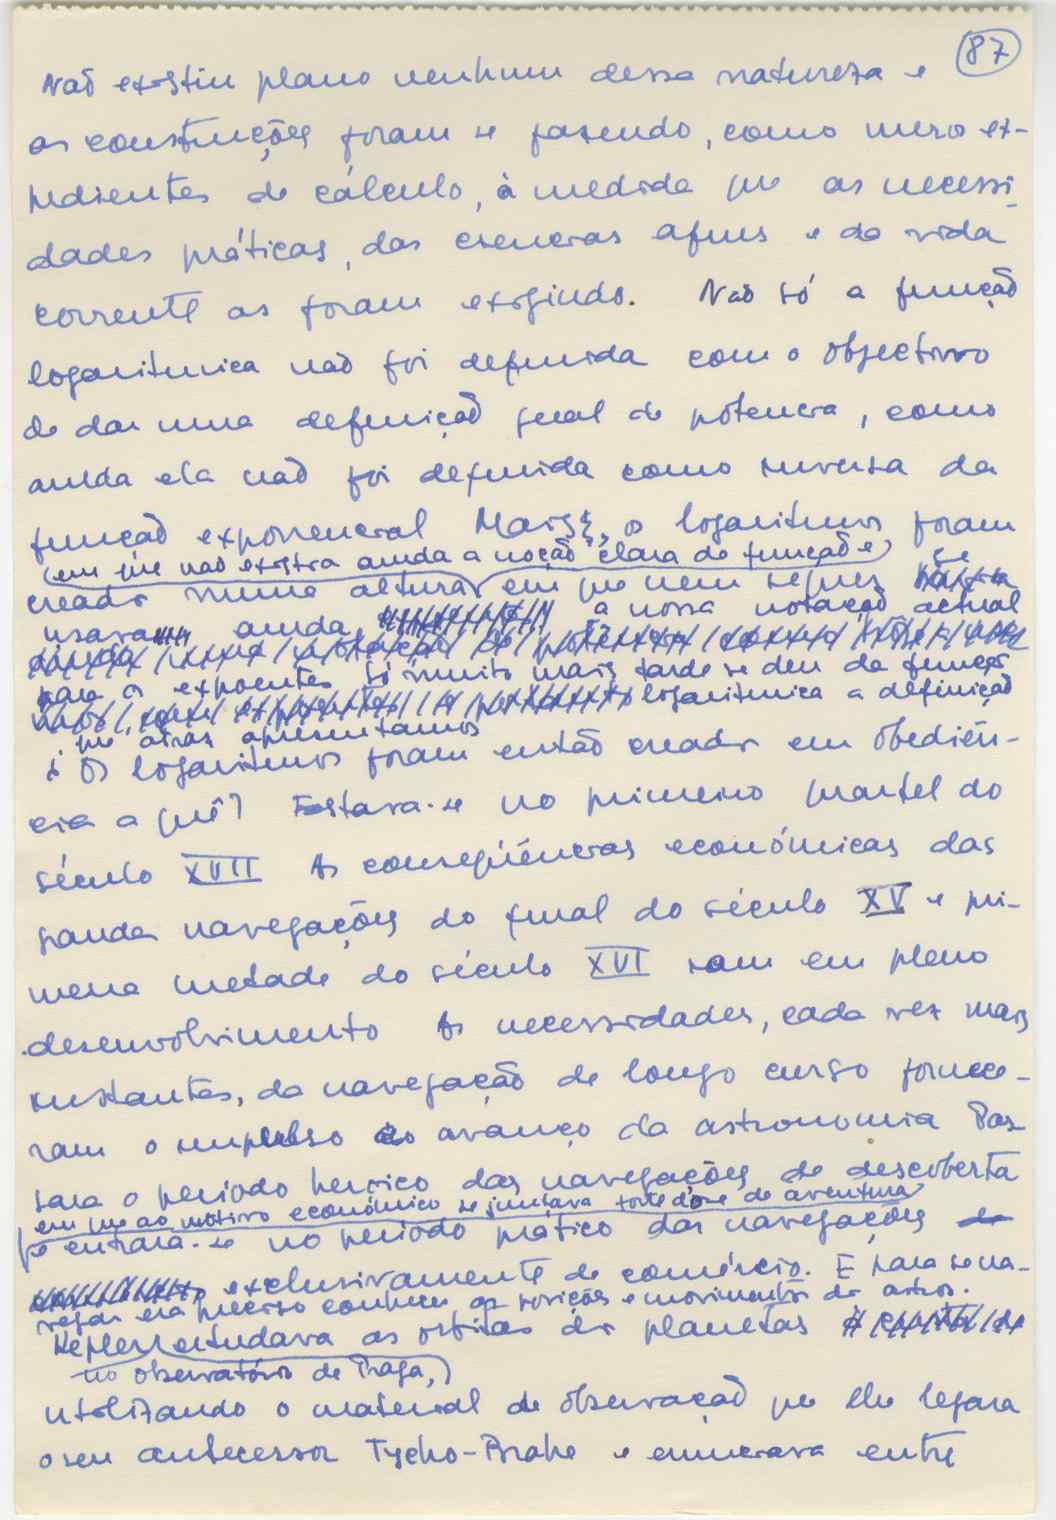 87
Não existiu plano nenhum dessa natureza e
as construções foram-se fazendo, como meros ex-
pedientes de cálculo, à medida que as necessi-
dades práticas, das ciencias afins e da vida
corrente as foram exigindo. Não só a função
logaritmica não foi definida com o objectivo
de dar uma definição geral de potencia, como
ainda ela não foi definida como inversa da
função exponencial Mais, os logaritmos foram
(em que não existia ainda a noção clara de função e)
creados numa altura em que nem sequer se
usava ainda a nossa notação actual
para os expoentes só muito mais tarde se deu da função
logaritmica a definição
que atraz apresentamos
Os logaritmos foram então creados em obediên-
cia a quê? Estava-se no primeiro quartel do
século XVII As conseqüências económicas das
grandes navegações do final do século XV e pri-
meira metade do século XVI iam em pleno
desenvolvimento As necessidades, cada vez mais
instantes, da navegação de longo curso fornece-
ram o impulso ao avanço da astronomia Pas-
sara o periodo heroico das navegações de descoberta
em que ao motivo económico se juntava forte dose de aventura
e entrara-se no periodo prático das navegações
exclusivamente de comércio. E para se na-
vegar era preciso conhecer as posições e movimentos dos astros.
Kepler estudava as orbitas dos planetas
no observatório de Praga,
utilizando o material de observação que lhe legara
o seu antecessor Tycho-Brahe e enunciava entre